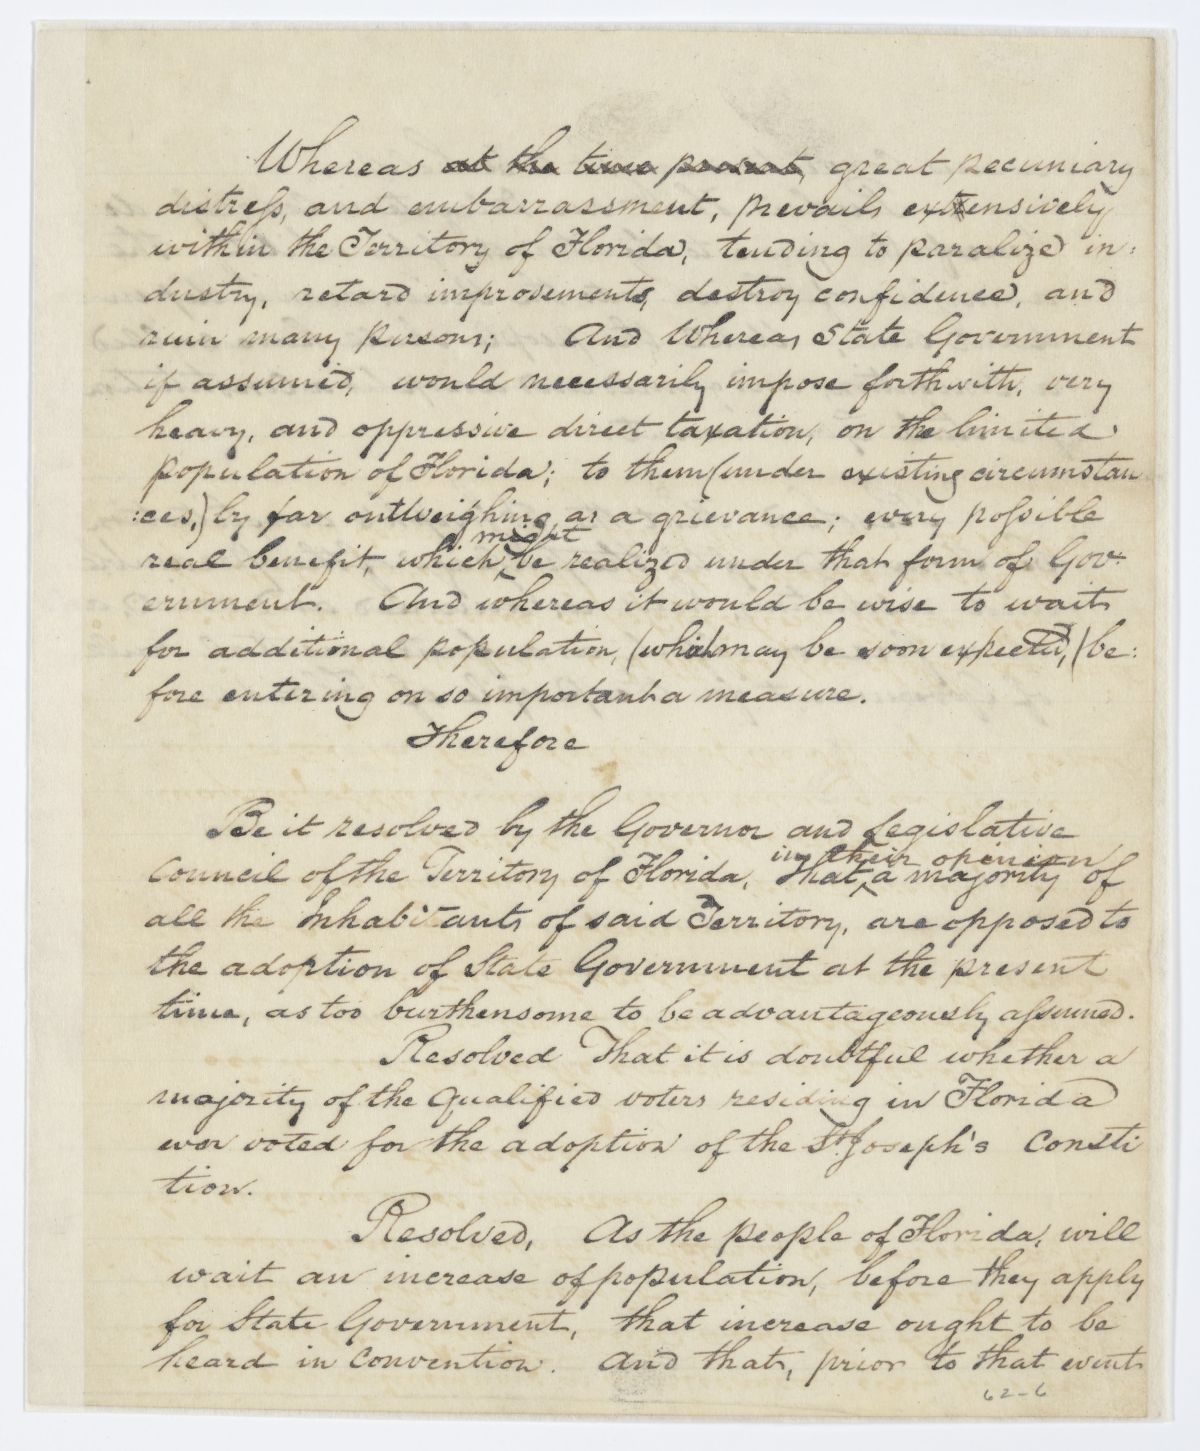 Whereas at the time present, great pecuniary
distress, and embarrassment, prevails extensively
within the Territory of Florida, tending to paralize in:
dustry, retard improvements, destroy confidence, and
ruin many persons; And Whereas State Government
if assumed, would necessarily impose forthwith, very
heavy, and oppressive direct taxation, on the limited
population of Florida; to them (under existing circumstan
:ces,) by far outweighing as a grievance; every possible
might
real benefit, which ‸ be realized under that form of Gov:
ernment. And whereas it would be wise to wait
for additional population, (which may be soon expected,) be:
fore entering on so important a measure.
Therefore
Be it resolved by the Governor and Legislative
in their opinion
Council of the Territory of Florida, That ‸ a majority of
all the Inhabitants of said Territory, are opposed to
the adoption of State Government at the present
time, as too burthensome to be advantageously assumed.
Resolved That it is doubtful whether a
majority of the Qualified voters residing in Florida
ever voted for the adoption of the St. Joseph's Consti
tion.
Resolved, As the people of Florida, will
wait an increase of population, before they apply
for State Government, that increase ought to be
heard in Convention. And that, prior to that event
62-6